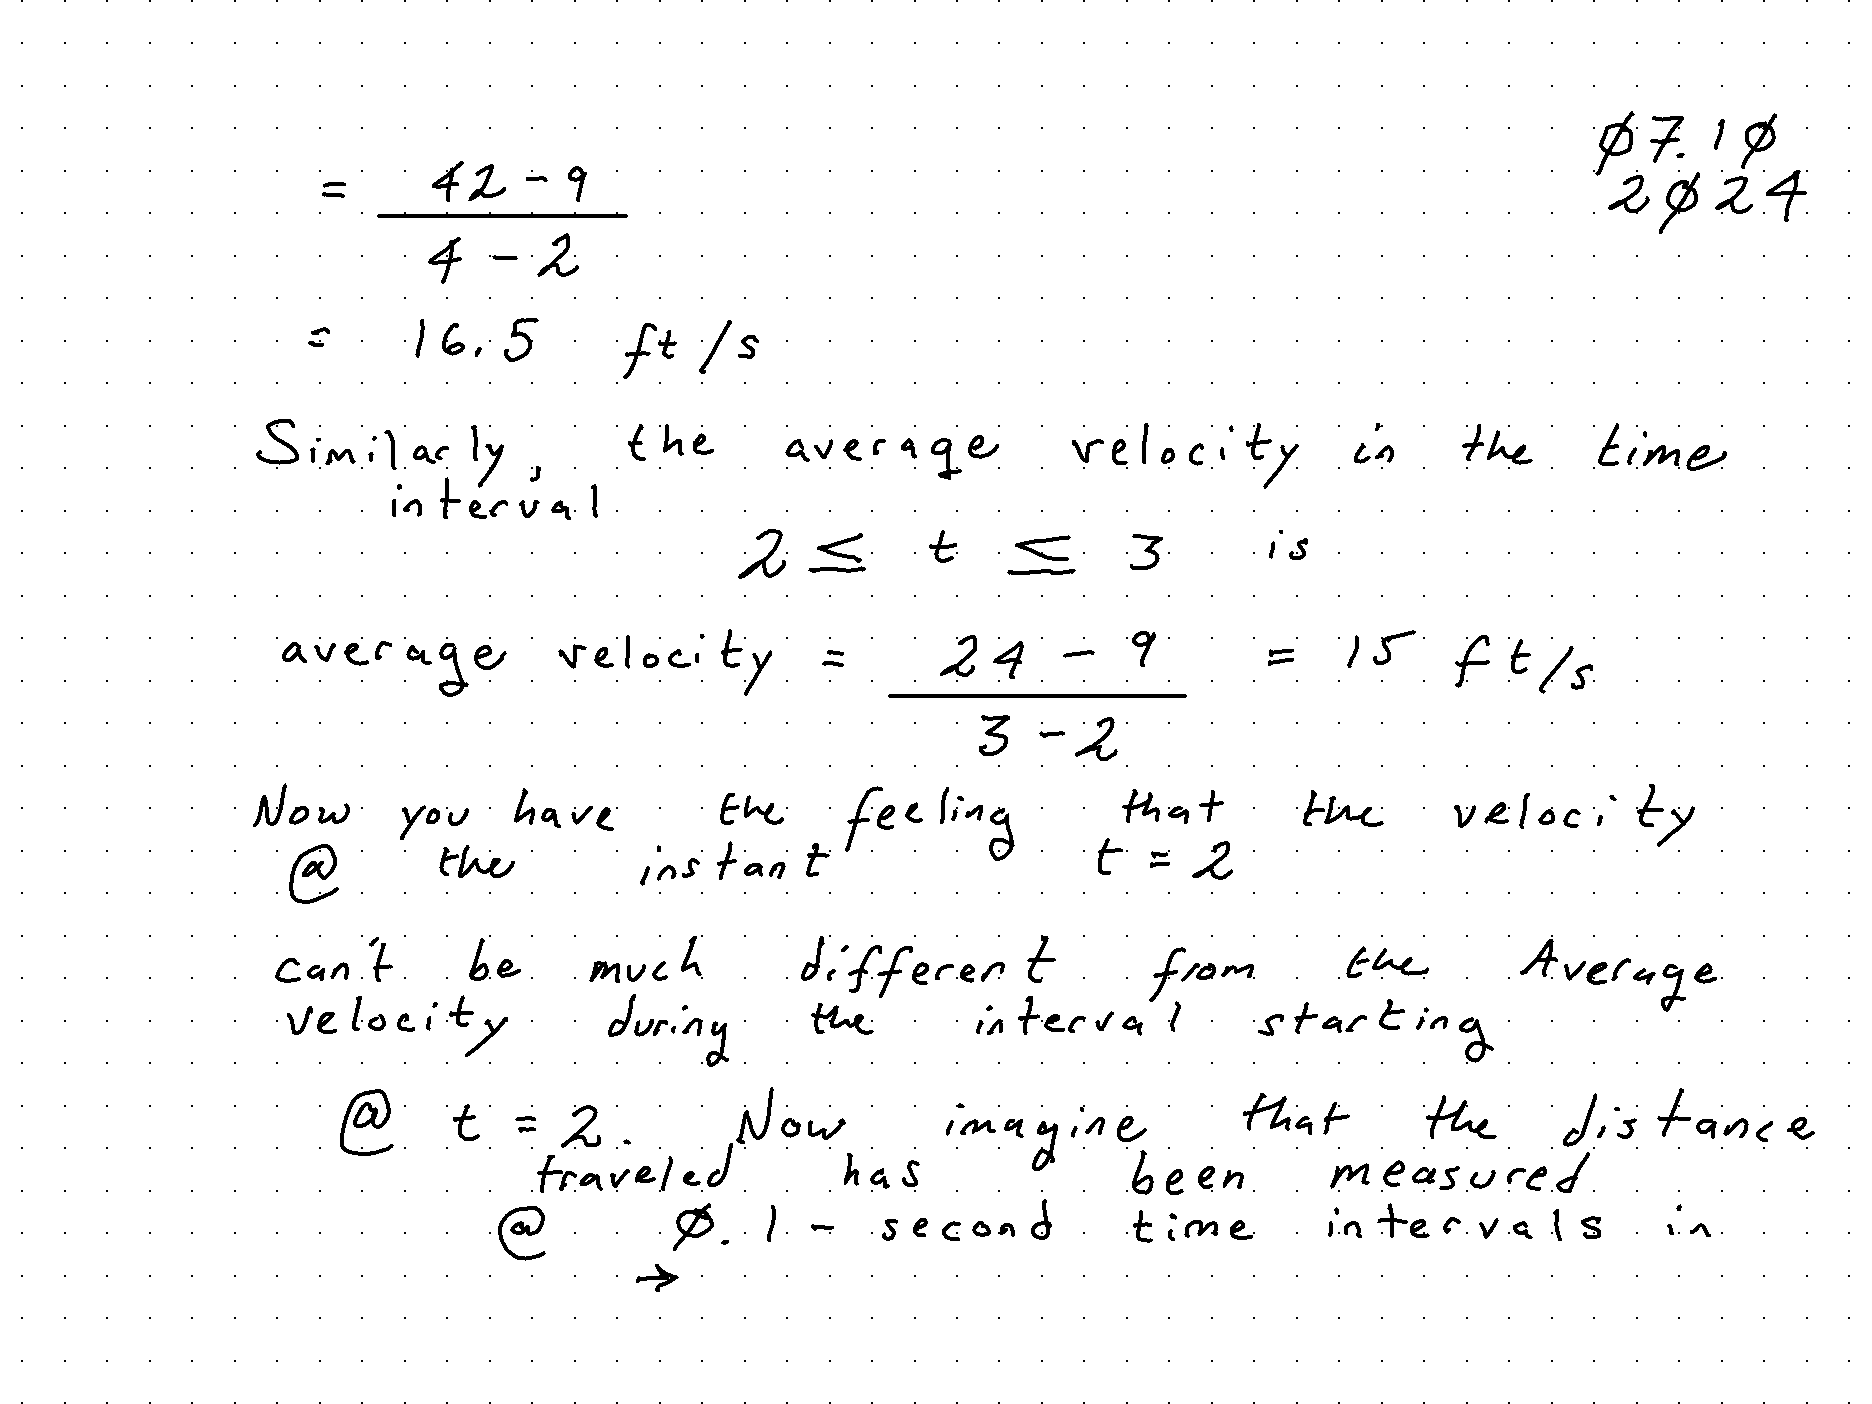 Ø7.1Ø
2Ø24
= 42 - 9
4 - 2
= 16.5 ft/s
Similarly, the average velocity in the time
interval
2 ≤ t ≤ 3 is
average velocity = 24 - 9 = 15 ft/s
3 - 2
Now you have the feeling that the velocity
@ the instant t = 2
can't be much different from the Average
velocity during the interval starting
@ t = 2. Now imagine that the distance
traveled has been measured
@ Ø.1 - second time intervals in
→